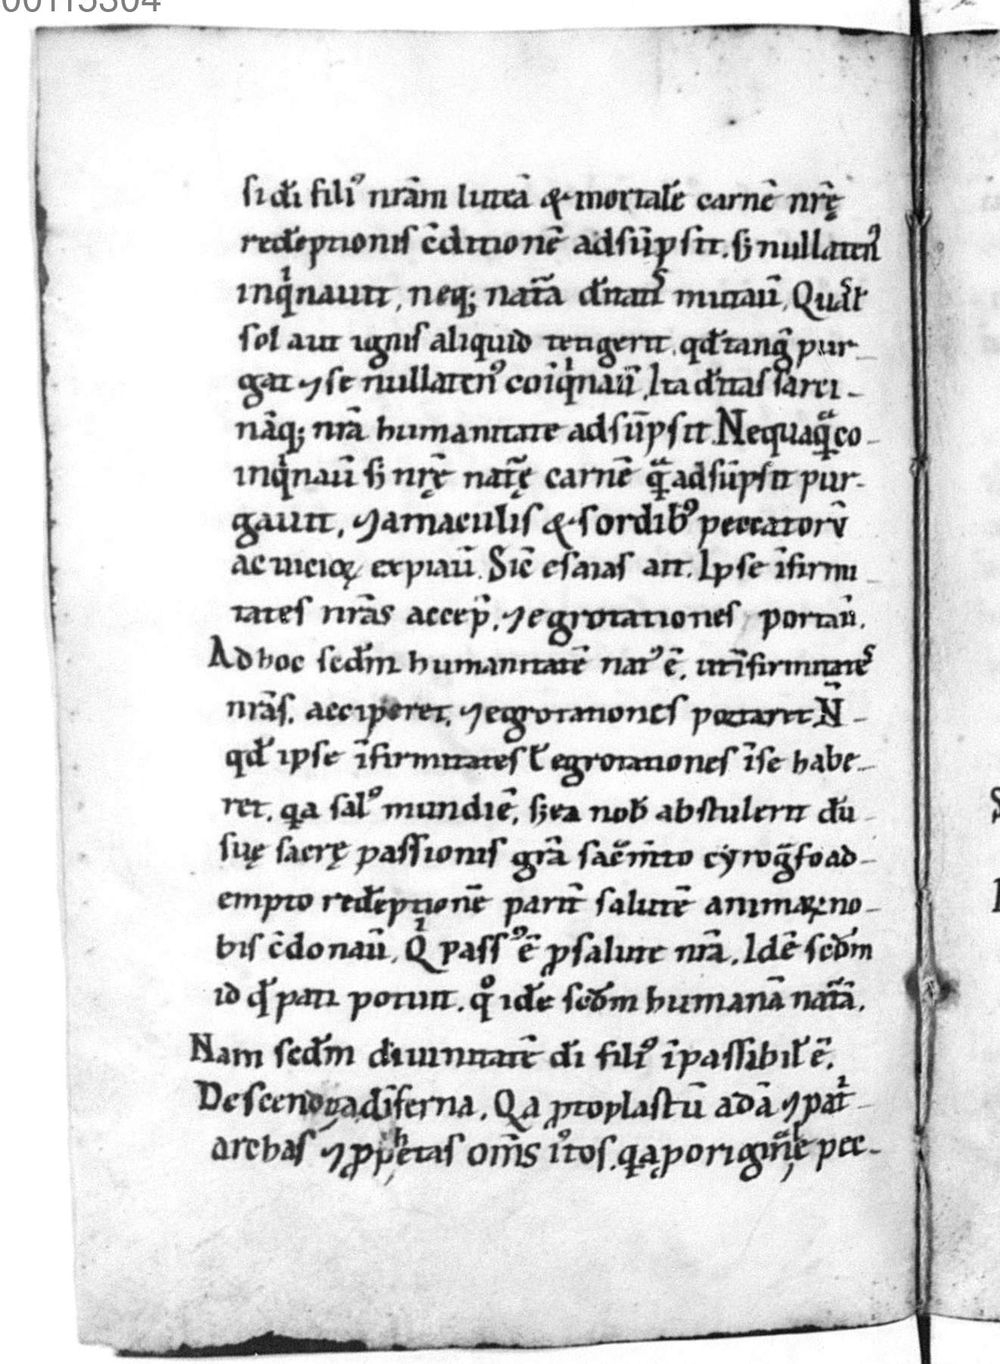 00115304
si dī fili᾽ nr̄am luteā & mortalē carnē nrę̄
redēptionis c̄ditionē adsūpsit. sꝫ nullaten᾽
inqⁱnauit, neqꝫ natā d̄itatis mutauit, Qualit̄
sol aut ignis aliquid tengerit. qd̄ tangit pur-
gat ⁊ se nullaten᾽ coīqⁱnauit. Ita d̄itas sarci-
nāqꝫ nrā humanitate adsūpsit. Nequaqᵃ co-
inqⁱnauit sꝫ nrę̄ natę̄ carnē qᵃ adsūpsit pur-
gauit, ⁊ a maculis & sordib᾽ peccatorū
ac uicioꝝ expiauit. Sic̄ esaias ait. Ipse īfirmi-
tates nrās accep̄, ⁊ egrotationes portauit.
Ad hoc scdm̄ humanitatē nat᾽ ē, ut īfirmitates
nrās acciperet, ⁊ egrotationes portaret. N̄
qd̄ ipse īfirmitates ł egrotationes ī se habe-
ret, qa sal᾽ mundi ē, sꝫ ea nob̄ abstulerit dū
suę sacrę passionis grā sac̄mto cyrogᵃfo ad-
empto redēptionē parit̄ salutē animaꝝ no-
bis c̄donauit. Qⁱ pass᾽ ē ꝓ salute nrā. Idē scdm̄
id qd̄ pati potuit. qᵒ id ē scdm̄ humanā natā.
Nam scdm̄ diuinitatē dī fili᾽ īpassibil̄ ē.
Descendit ad īferna. Qa ꝓtoplastū adā ⁊ patⁱ-
archas ⁊ ꝓphetas om̄s i᾽tos. qa ꝑ originali pec-